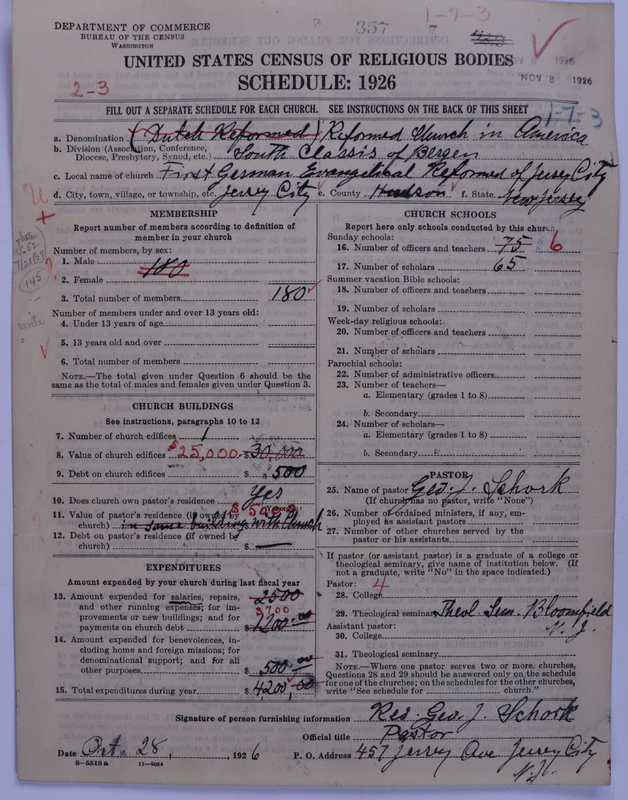 1-7-3
DEPARTMENT OF COMMERCE
BUREAU OF THE CENSUS
WASHINGTON
357
UNITED STATES CENSUS OF RELIGIOUS BODIES
NOV 8 1926
SCHEDULE: 1926
2-3
FILL OUT A SEPARATE SCHEDULE FOR EACH CHURCH. SEE INSTRUCTIONS ON THE BACK OF THIS SHEET
1-7-3
a. Denomination (Dutch Reformed) Reformed Church in America
b. Division (Association, Conference, Diocese, Presbytery, Synod, etc.) South Classis of Bergen
c. Local name of church First German Evangelical Reformed of Jersey City
d. City, town, village, or township, etc. Jersey City e. County Hudson f. State New Jersey
MEMBERSHIP
Report number of members according to definition of
member in your church
Number of members, by sex:
1. Male
180
2. Female
3. Total number of members 180
Number of members under and over 13 years old:
4. Under 13 years of age
5. 13 years old and over
6. Total number of members
NOTE.—The total given under Question 6 should be
same as the total of males and females given under Question 3.
145
CHURCH BUILDINGS
See instructions, paragraphs 10 to 12
7. Number of church edifices 1
8. Value of church edifices $25,000 30,000
9. Debt on church edifices $ 500
10. Does church own pastor's residence Yes
11. Value of pastor's residence (if owned by $5000
church) in same building with Church
12. Debt on pastor's residence (if owned by
church) $ —
EXPENDITURES
Amount expended by your church during last fiscal year
13. Amount expended for salaries, repairs, 2500
and other running expenses; for im-
provements or new buildings; and for 3700
payments on church debt $ 1200.00
14. Amount expended for benevolences, in-
cluding home and foreign missions; for
denominational support; and for all
other purposes $ 500.00
15. Total expenditures during year $ 4200.00
CHURCH SCHOOLS
Report here only schools conducted by this church
Sunday schools:
16. Number of officers and teachers 75 6
17. Number of scholars 65
Summer vacation Bible schools:
18. Number of officers and teachers
19. Number of scholars
Week-day religious schools:
20. Number of officers and teachers
21. Number of scholars
Parochial schools:
22. Number of administrative officers
23. Number of teachers—
a. Elementary (grades 1 to 8)
b. Secondary
24. Number of scholars—
a. Elementary (grades 1 to 8)
b. Secondary
PASTOR
25. Name of pastor Geo. J. Schork
(If church has no pastor, write "None")
26. Number of ordained ministers, if any, em-
ployed as assistant pastors
27. Number of other churches served by the
pastor or his assistants
If pastor (or assistant pastor) is a graduate of a college or
theological seminary, give name of institution below. (If
not a graduate, write "No" in the space indicated.)
Pastor: 4
28. College
29. Theological seminary Theol. Sem. Bloomfield
N. J.
Assistant pastor:
30. College
31. Theological seminary
NOTE.—Where one pastor serves two or more churches,
Questions 28 and 29 should be answered only on the schedule
for one of the churches; on the schedules for the other churches,
write "See schedule for church."
Signature of person furnishing information Rev. Geo. J. Schork
Official title Pastor
Date Oct. 28, 1926 P. O. Address 457 Jersey Ave Jersey City
N.J.
8—5518a 11—9054